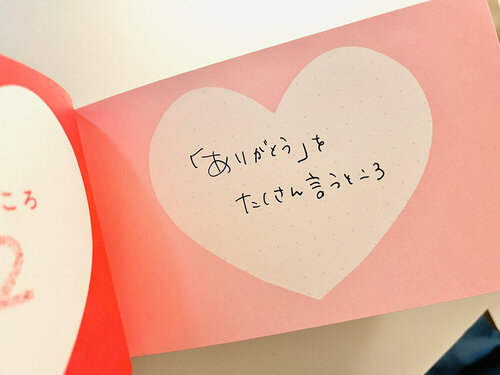 ころ
2
「ありがとう」を
たくさん言うところ